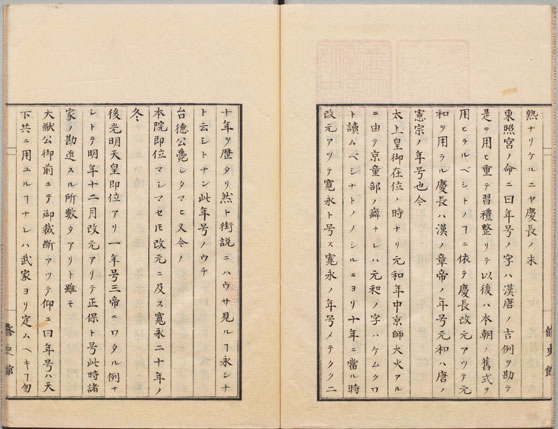 然ナリケルニヤ慶長ノ末
東照宮ノ命ニ曰年号ノ字ハ漢唐ノ吉例ヲ勘テ
是ヲ用ヒ重テ習禮整リテ以後ハ本朝ノ舊式ヲ
用ヒラルベシトノヿニ依テ慶長改元アツテ元
和ヲ用ラル慶長ハ漢ノ章帝ノ年号元和ハ唐ノ
憲宗ノ年号也今
太上皇御在位ノ時ナリ元和年中京師大火アル
ニ由テ京童部ノ癖ナレハ元和ノ字ハケムクワ
ト讀ムベシナトノノシルニヨリ十年ニ當ル時
改元アツテ寛永ト号ス寛永ノ年号メテタク二
十年ヲ歴タリ然ト街説ニハウサ見ルヿ永シナ
ト云シトナン此年号ノウチ
台德公薨シタマヒ又今ノ
本院即位マシマセ𪜈改元ニ及ス寛永二十年ノ
冬
後光明天皇即位アリ一年号三帝ニワタル例ナ
シトテ明年十二月改元アリテ正保ト号此時諸
家ノ勘進スル所數タアリト雖モ
大猷公御前ニテ御裁断アツテ仰ニ曰年号ハ天
下共ニ用ユルヿナレハ武家ヨリ定ムヘキヿ勿
修史館